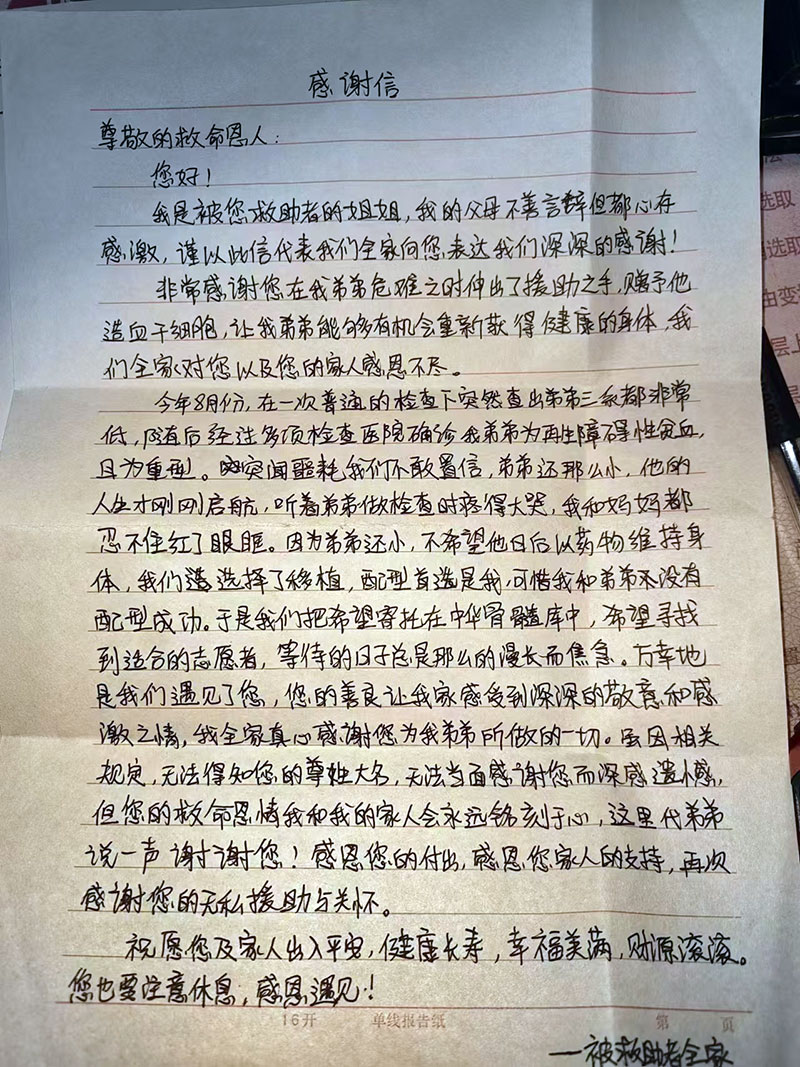 感谢信
尊敬的救命恩人：
您好！
我是被您救助者的姐姐，我的父母不善言辞但都心存
感激，谨以此信代表我们全家向您表达我们深深的感谢！
非常感谢您在我弟弟危难之时伸出了援助之手，赠予他
造血干细胞，让我弟弟能够有机会重新获得健康的身体，我
们全家对您以及您的家人感恩不尽。
今年8月份，在一次普通的检查下突然查出弟弟三系都非常
低，随后经过多项检查医院确诊我弟弟为再生障碍性贫血，
且为重型。突闻噩耗我们不敢置信，弟弟还那么小，他的
人生才刚刚启航，听着弟弟做检查时疼得大哭，我和妈妈都
忍不住红了眼眶。因为弟弟还小，不希望他日后以药物维持身
体，我们选择了移植，配型首选是我，可惜我和弟弟不没有
配型成功。于是我们把希望寄托在中华骨髓库中，希望寻找
到适合的志愿者，等待的日子总是那么的漫长而焦急。万幸地
是我们遇见了您，您的善良让我家感受到深深的敬意和感
激之情，我全家真心感谢您为我弟弟所做的一切。虽因相关
规定，无法得知您的尊姓大名，无法当面感谢您而深感遗憾，
但您的救命恩情我和我的家人会永远铭刻于心，这里代弟弟
说一声谢谢您！感恩您的付出，感恩您家人的支持，再次
感谢您的无私援助与关怀。
祝愿您及家人出入平安，健康长寿，幸福美满，财源滚滚。
您也要注意休息，感恩遇见！
16开 单线报告纸 第 页
——被救助者全家
选取
由变
层上
层